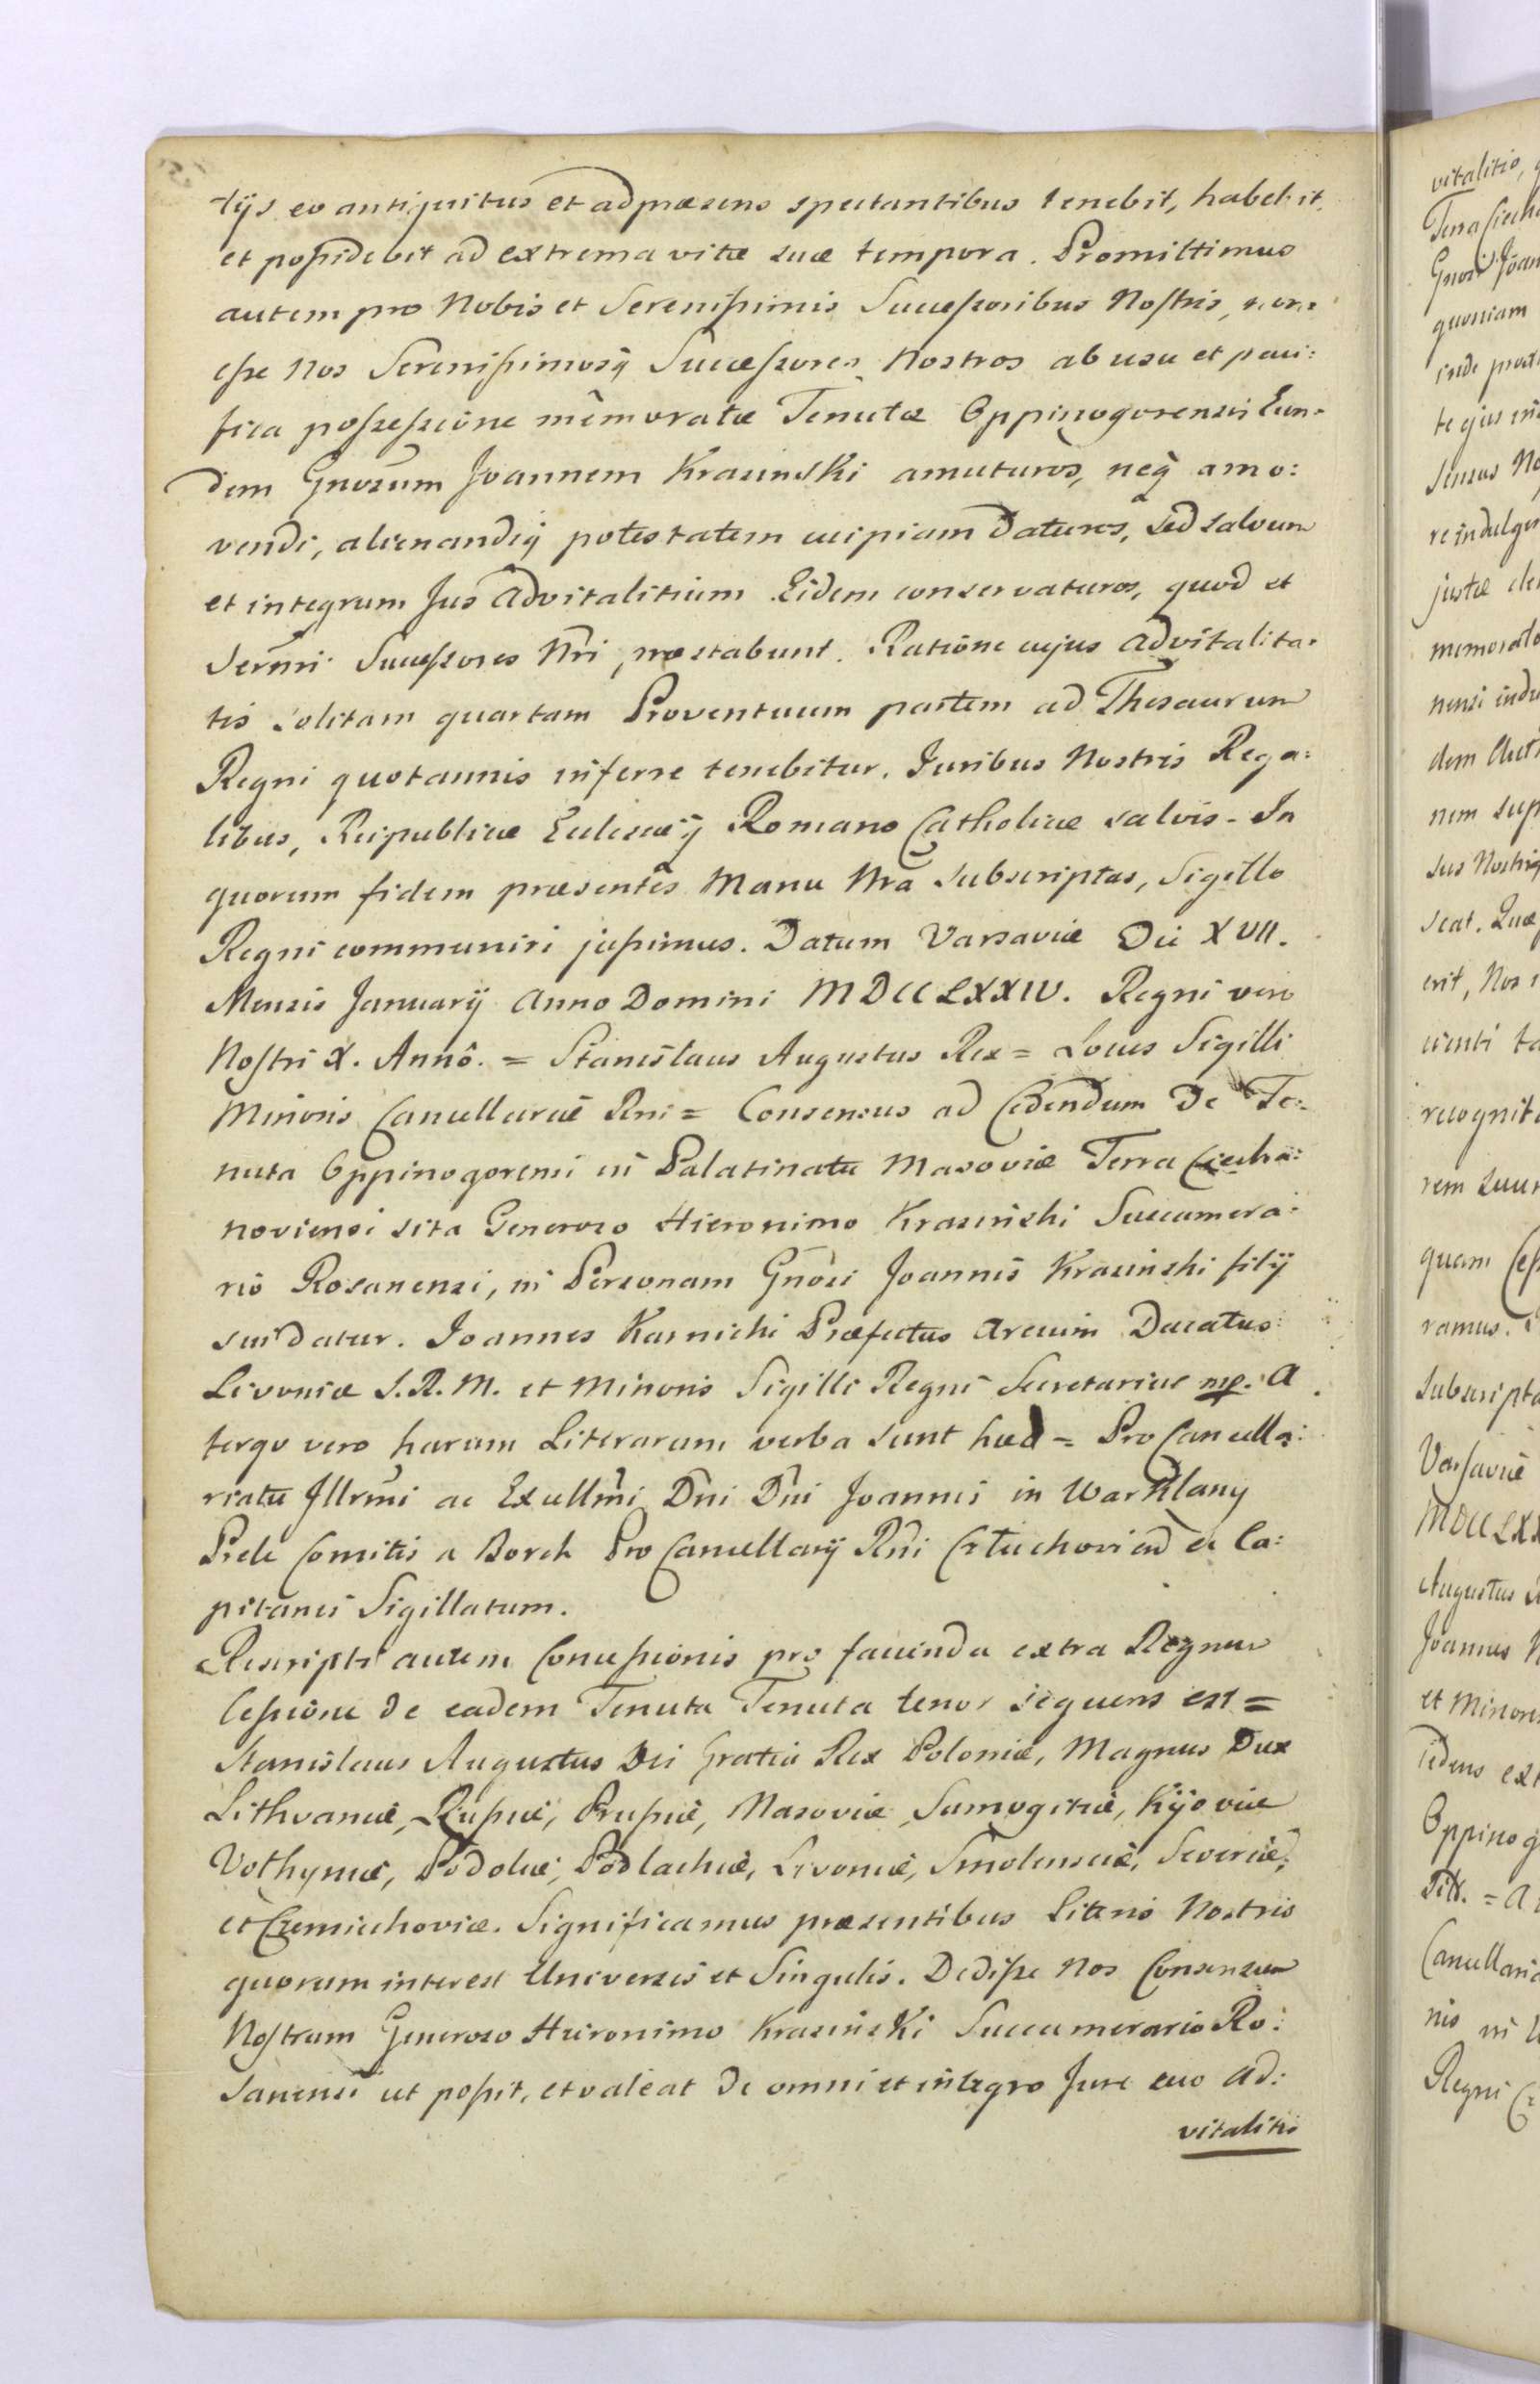 tijs eo antiquitus et adpræsens spectantibus tenebit, habebit,
et possidebit ad extrema vitæ suæ tempora. Promittimus
autem pro Nobis et Serenissimis Successoribus Nostris, non
esse Nos Serenissimosq Successores Nostros ab usu et paci:
fica possessione memoratæ Tenutæ Oppinogorensis Eun=
dem Gnosum Joannem Krasinski amoturos, neq amo:
vendi, alienandiq potestatem cuipiam daturos, sed salvum
et integrum Jus advitalitium Eidem conservaturos, quod et
Sermi Successores Nri præstabunt. Ratione cujus advitalita=
tis solitam quartam Proventuum partem ad Thesaurum
Regni quotannis inferre tenebitur. Juribus Nostris Rega:
libus, Reipublicæ Eclesiæq Romano Catholicæ salvis - In
quorum fidem præsentes Manu Nra subscriptas, Sigillo
Regni communiri jussimus. Datum Varsaviæ Die XVII.
Mensis Januarij Anno Domini MDCCLXXIV. Regni vero
Nostri X. Anno. = Stanislaus Augustus Rex = Locus Sigilli
Minoris Cancellariæ Rni = Consensus ad Cedendum De Te=
nuta Oppinogorensi in Palatinatu Masoviæ Terra Ciecha:
noviensi sita Generoso Hieronimo Krasinski Succamera:
rio Rosanensi, in Personam Gnosi Joannis Krasinski filij
sui datur. Joannes Karnicki Præfectus Arcium Ducatus
Livoniæ S. R. M. et Minoris Sigilli Regni Secretarius mp. A
tergo vero harum Literarum verba sunt hæc = Pro Cancella:
riatu Illrmi ac Excellmi Dni Dni Joannis in Warklany
Prele Comitis a Borch Pro Cancellarij Rni
pitanei Sigillatum.
Rescripti autem Concessionis pro facienda extra Regnum
Cessione de eadem Tenuta Tenuta tenor sequens est =
Stanislaus Augustus Dei Gratia Rex Poloniæ, Magnus Dux
Lithvaniæ, Russiæ, Prussiæ, Masoviæ, Samogitiæ, Kijoviæ
Volhyniæ, Podoliæ, Podlachiæ, Livoniæ, Smolensciæ, Severiæ,
et Czerniechoviæ. Significamus præsentibus Literis Nostris
quorum interest Universis et Singulis. Dedisse Nos Consensum
Nostrum Generoso Hieronimo Krasinski Succamerario Ro:
sanensi ut possit, et valeat de omni et integro Jure suo ad:
vitalitio